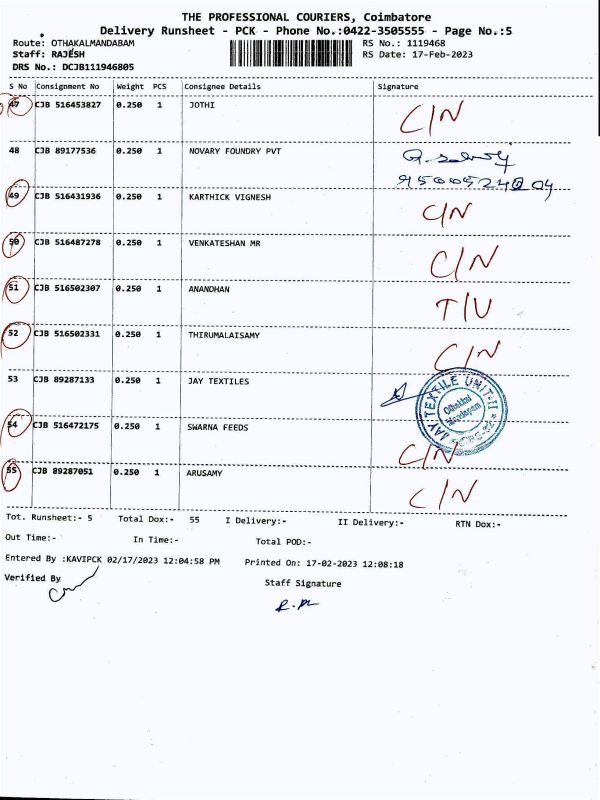 THE PROFESSIONAL COURIERS, Coimbatore
Delivery Runsheet - PCK - Phone No.:0422-3505555 - Page No.:5
Route: OTHAKALMANDABAM RS No.: 1119468
Staff: RAJESH RS Date: 17-Feb-2023
DRS No.: DCJB111946805
S No Consignment No Weight PCS Consignee Details Signature
47 CJB 516453827 0.250 1 JOTHI C/N
48 CJB 89177536 0.250 1 NOVARY FOUNDRY PVT
49 CJB 516431936 0.250 1 KARTHICK VIGNESH C/N
50 CJB 516487278 0.250 1 VENKATESHAN MR C/N
51 CJB 516502307 0.250 1 ANANDHAN T/U
52 CJB 516502331 0.250 1 THIRUMALAISAMY C/N
53 CJB 89287133 0.250 1 JAY TEXTILES
JAY TEXTILE UNIT-II
Othakkal
Mandapam
54 CJB 516472175 0.250 1 SWARNA FEEDS C/N
55 CJB 89287051 0.250 1 ARUSAMY C/N
Tot. Runsheet:- 5 Total Dox:- 55 I Delivery:- II Delivery:- RTN Dox:-
Out Time:- In Time:- Total POD:-
Entered By :KAVIPCK 02/17/2023 12:04:58 PM Printed On: 17-02-2023 12:08:18
Verified By Staff Signature